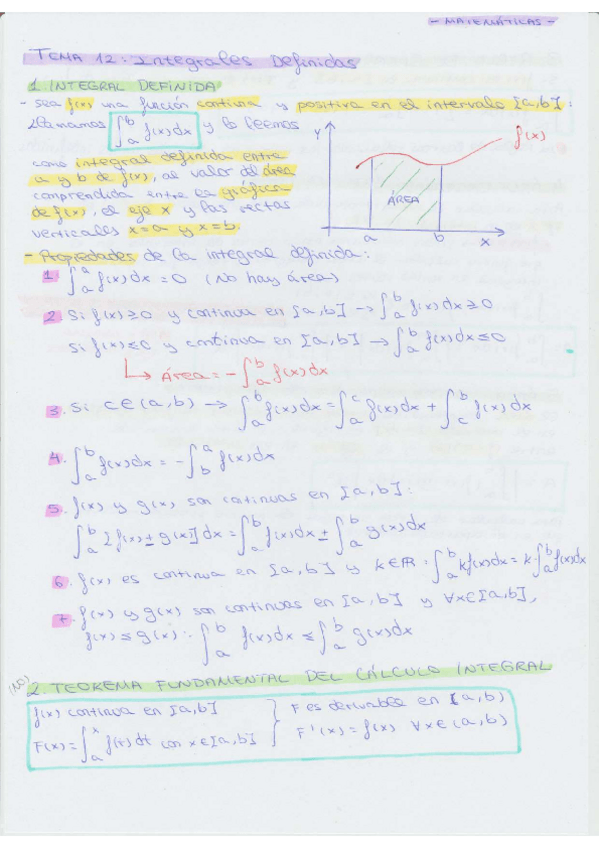 - MATEMÁTICAS -
TEMA 12: Integrales Definidas
1. INTEGRAL DEFINIDA
- sea f(x) una función continua y positiva en el intervalo [a,b]:
llamamos ∫_a^b f(x)dx y lo leemos
como integral definida entre
a y b de f(x), al valor del área
comprendida entre la gráfica
de f(x), el eje x y las rectas
verticales x=a y x=b.
Y
f(x)
ÁREA
a b X
- Propiedades de la integral definida:
1. ∫_a^a f(x)dx = 0 (No hay área)
2. Si f(x)≥0 y continua en [a,b] → ∫_a^b f(x)dx ≥ 0
Si f(x)≤0 y continua en [a,b] → ∫_a^b f(x)dx ≤ 0
↳ Área = -∫_a^b f(x)dx
3. Si c∈(a,b) → ∫_a^b f(x)dx = ∫_a^c f(x)dx + ∫_c^b f(x)dx
4. ∫_a^b f(x)dx = -∫_b^a f(x)dx
5. f(x) y g(x) son continuas en [a,b]:
∫_a^b [f(x) ± g(x)]dx = ∫_a^b f(x)dx ± ∫_a^b g(x)dx
6. f(x) es continua en [a,b] y k∈ℝ: ∫_a^b kf(x)dx = k·∫_a^b f(x)dx
7. f(x) y g(x) son continuas en [a,b] y ∀x∈[a,b],
f(x) ≤ g(x): ∫_a^b f(x)dx ≤ ∫_a^b g(x)dx
(NO) 2. TEOREMA FUNDAMENTAL DEL CÁLCULO INTEGRAL
f(x) continua en [a,b] } F es derivable en (a,b)
F(x) = ∫_a^x f(t)dt con x∈[a,b] } F'(x) = f(x) ∀x∈(a,b)